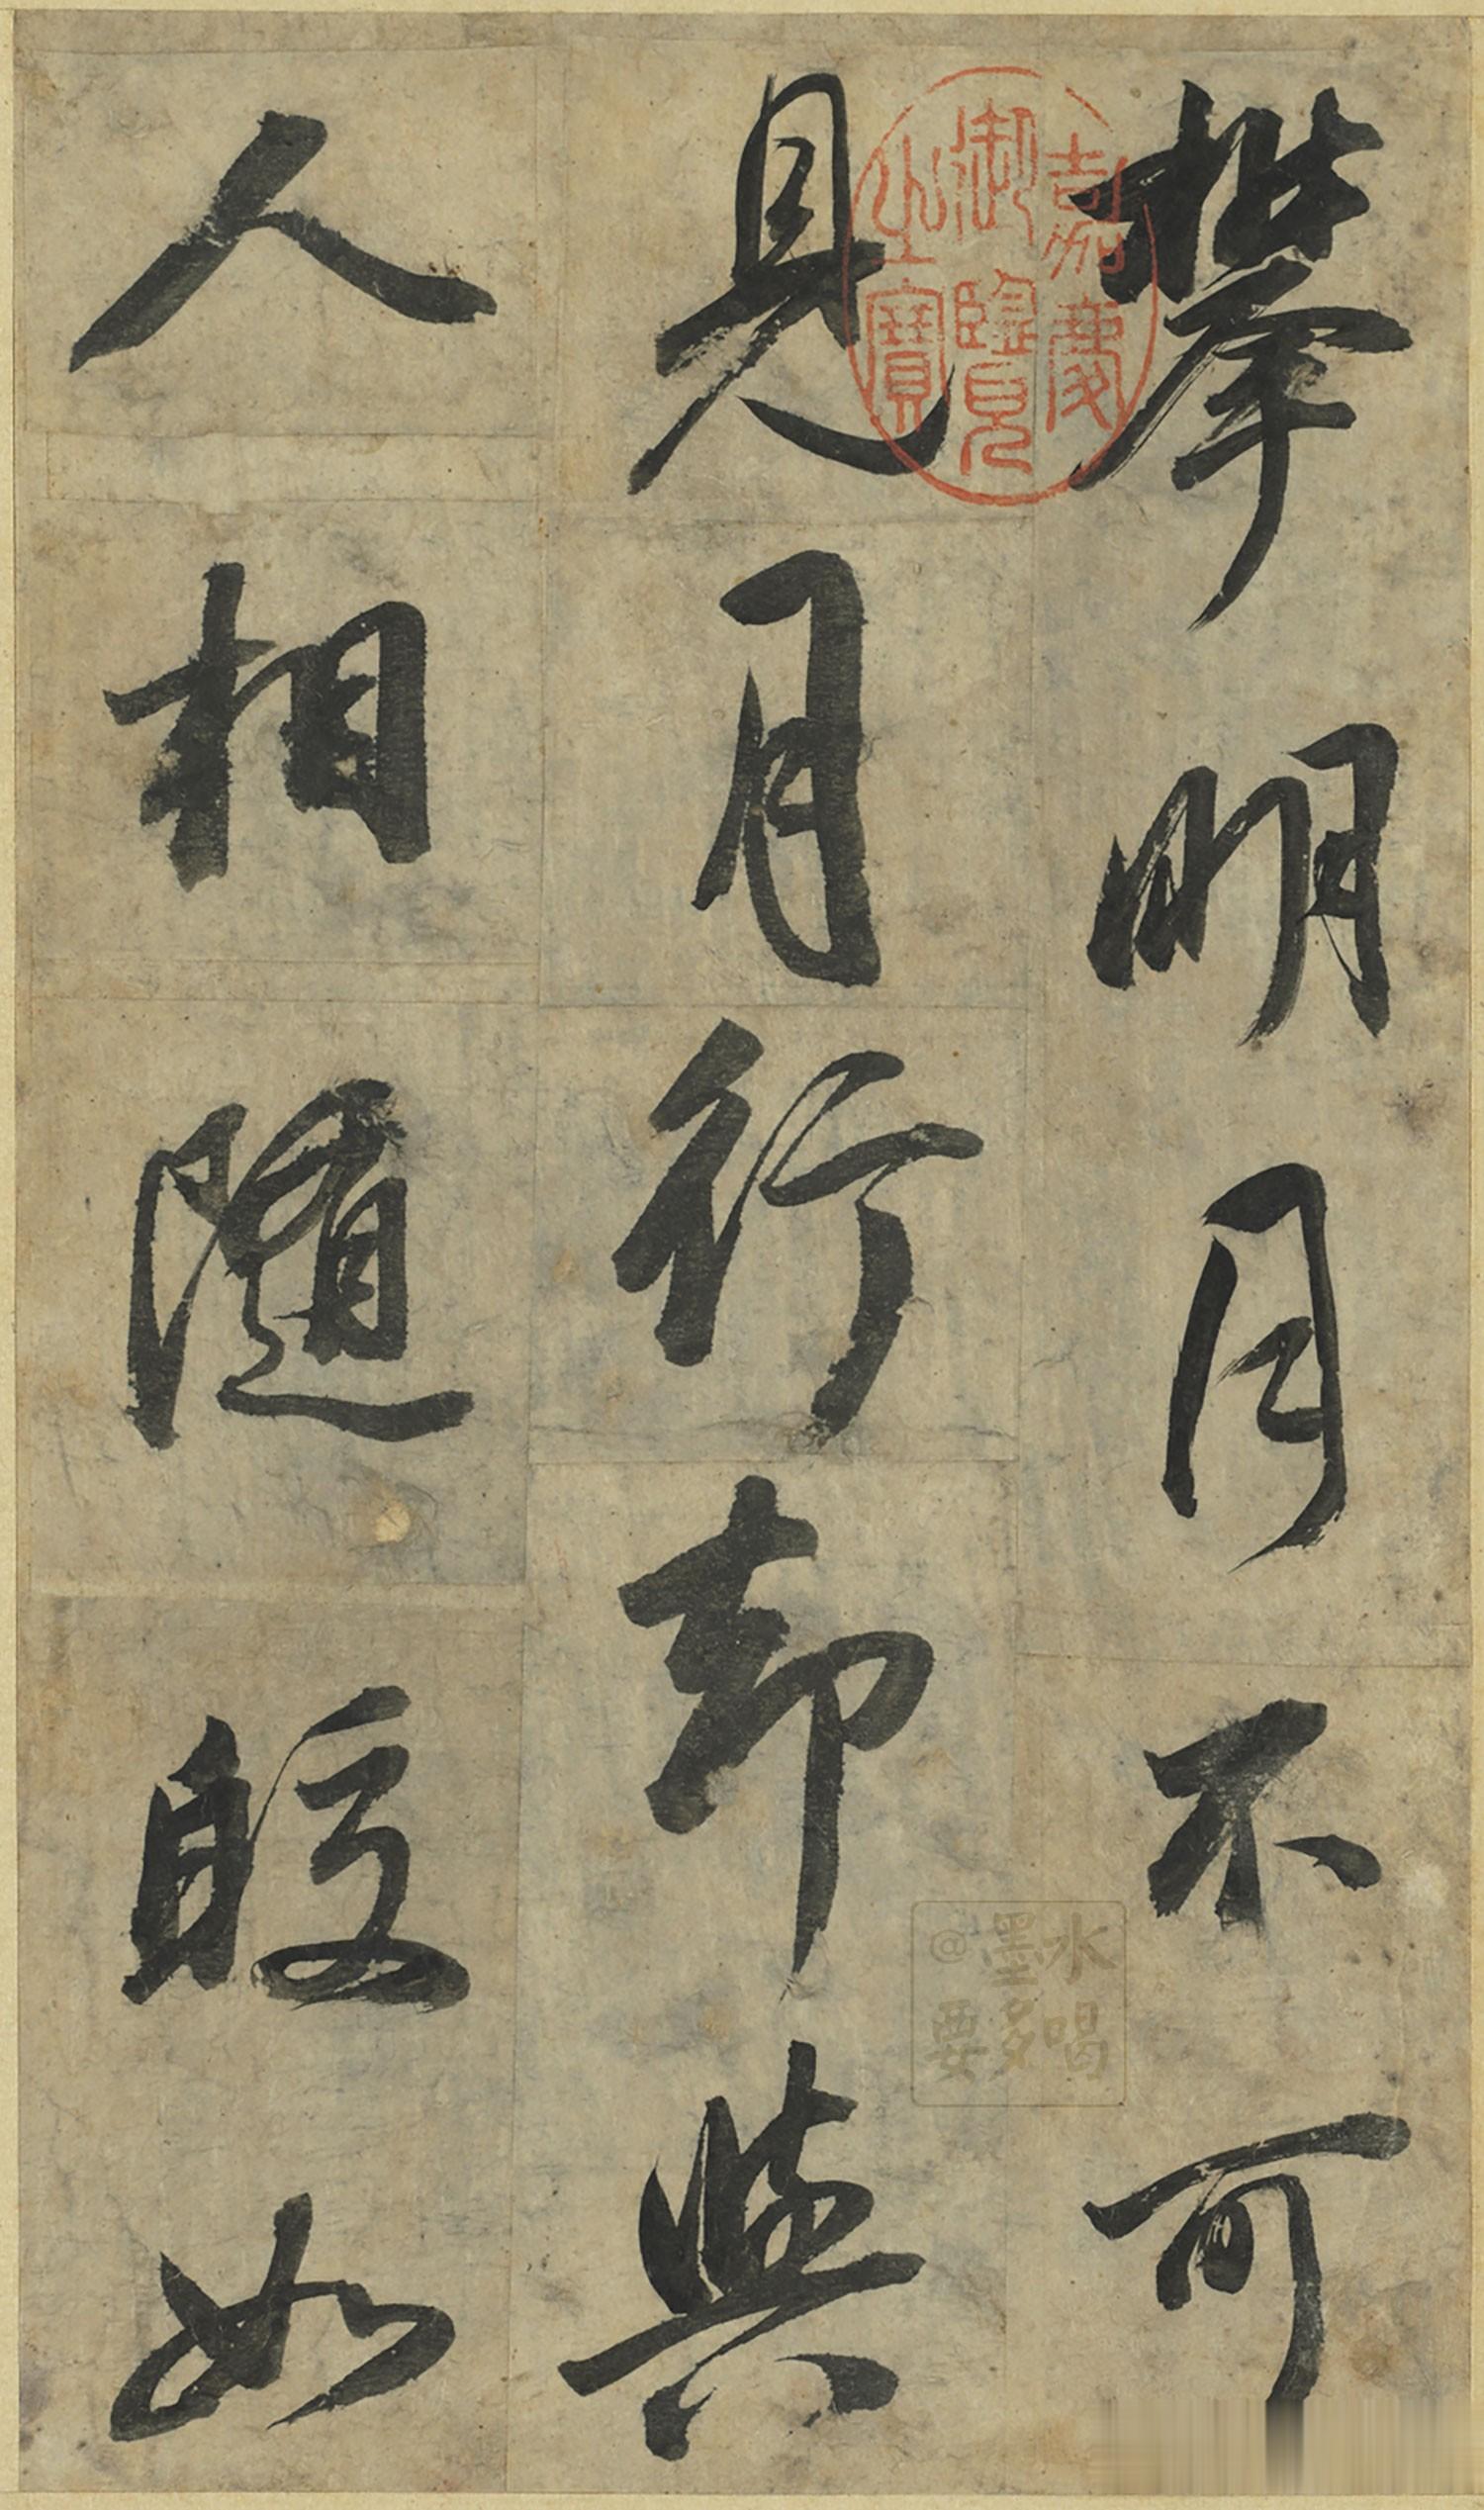 攀明月不可
見月行却與
人相隨皎如
嘉慶
御覽
之寶
水喝
墨多
@要